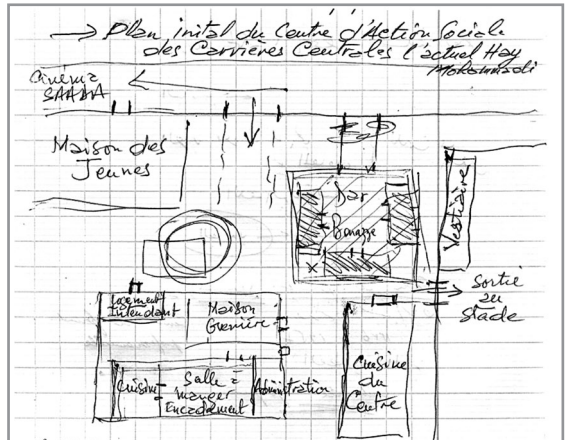 → Plan inital du Centre d'Action Sociale
des Carrières Centrales l'actuel Hay
Mohammadi
Cinéma
SAADA
Maison des
Jeunes
Dar
Vestiaire
Sortie
au
Stade
Logement
Intendant
Maison
Cuisine
Salle à
manger
Encadrement
Administration
Cuisine
du
Centre